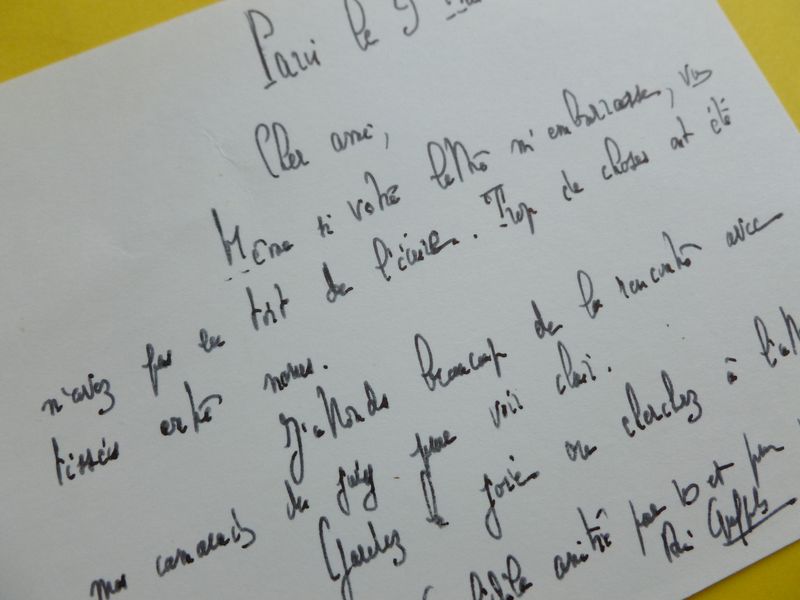 Paris le 9
Cher ami,
Même si votre lettre m'embarrasse, vous
n'avez pas eu tort de l'écrire. Trop de choses ont été
tissées entre nous.
J'attends beaucoup de la rencontre avec
mes camarades du jury pour voir clair.
Gardez le ou cherchez à
amitié pour et pour